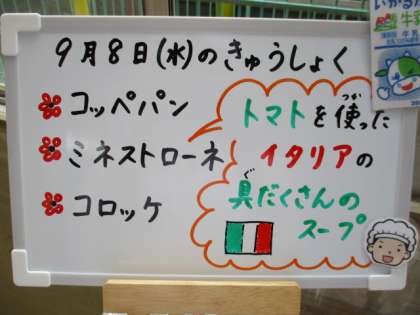 9月8日(水)のきゅうしょく
コッペパン
ミネストローネ
コロッケ
トマトを使った
つか
イタリアの
具だくさんの
ぐ
スープ
いかるが
牛